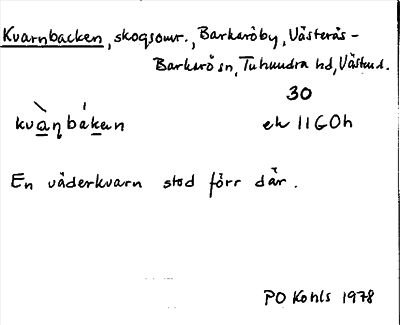 Kvarnbacken, skogsomr., Barkaröby, Västerås-
Barkarö sn, Tuhundra hd, Västml.
30
kvàn̥bákan ek 11G0h
En väderkvarn stod förr där.
PO Kohls 1978